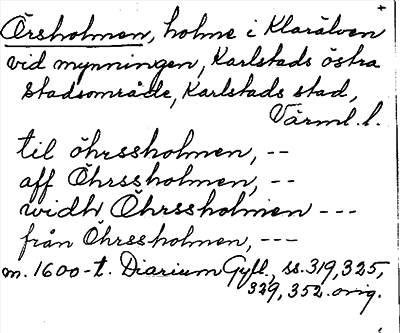 Örsholmen, holme i Klarälven
vid mynningen, Karlstads östra
stadsområde, Karlstads stad,
Värml. l.
til öhrssholmen, --
aff Öhrssholmen, --
widh Öhrssholmen ---
från Öhrssholmen, ---
m. 1600-t. Diarium Gyll., ss. 319, 325,
329, 352. orig.